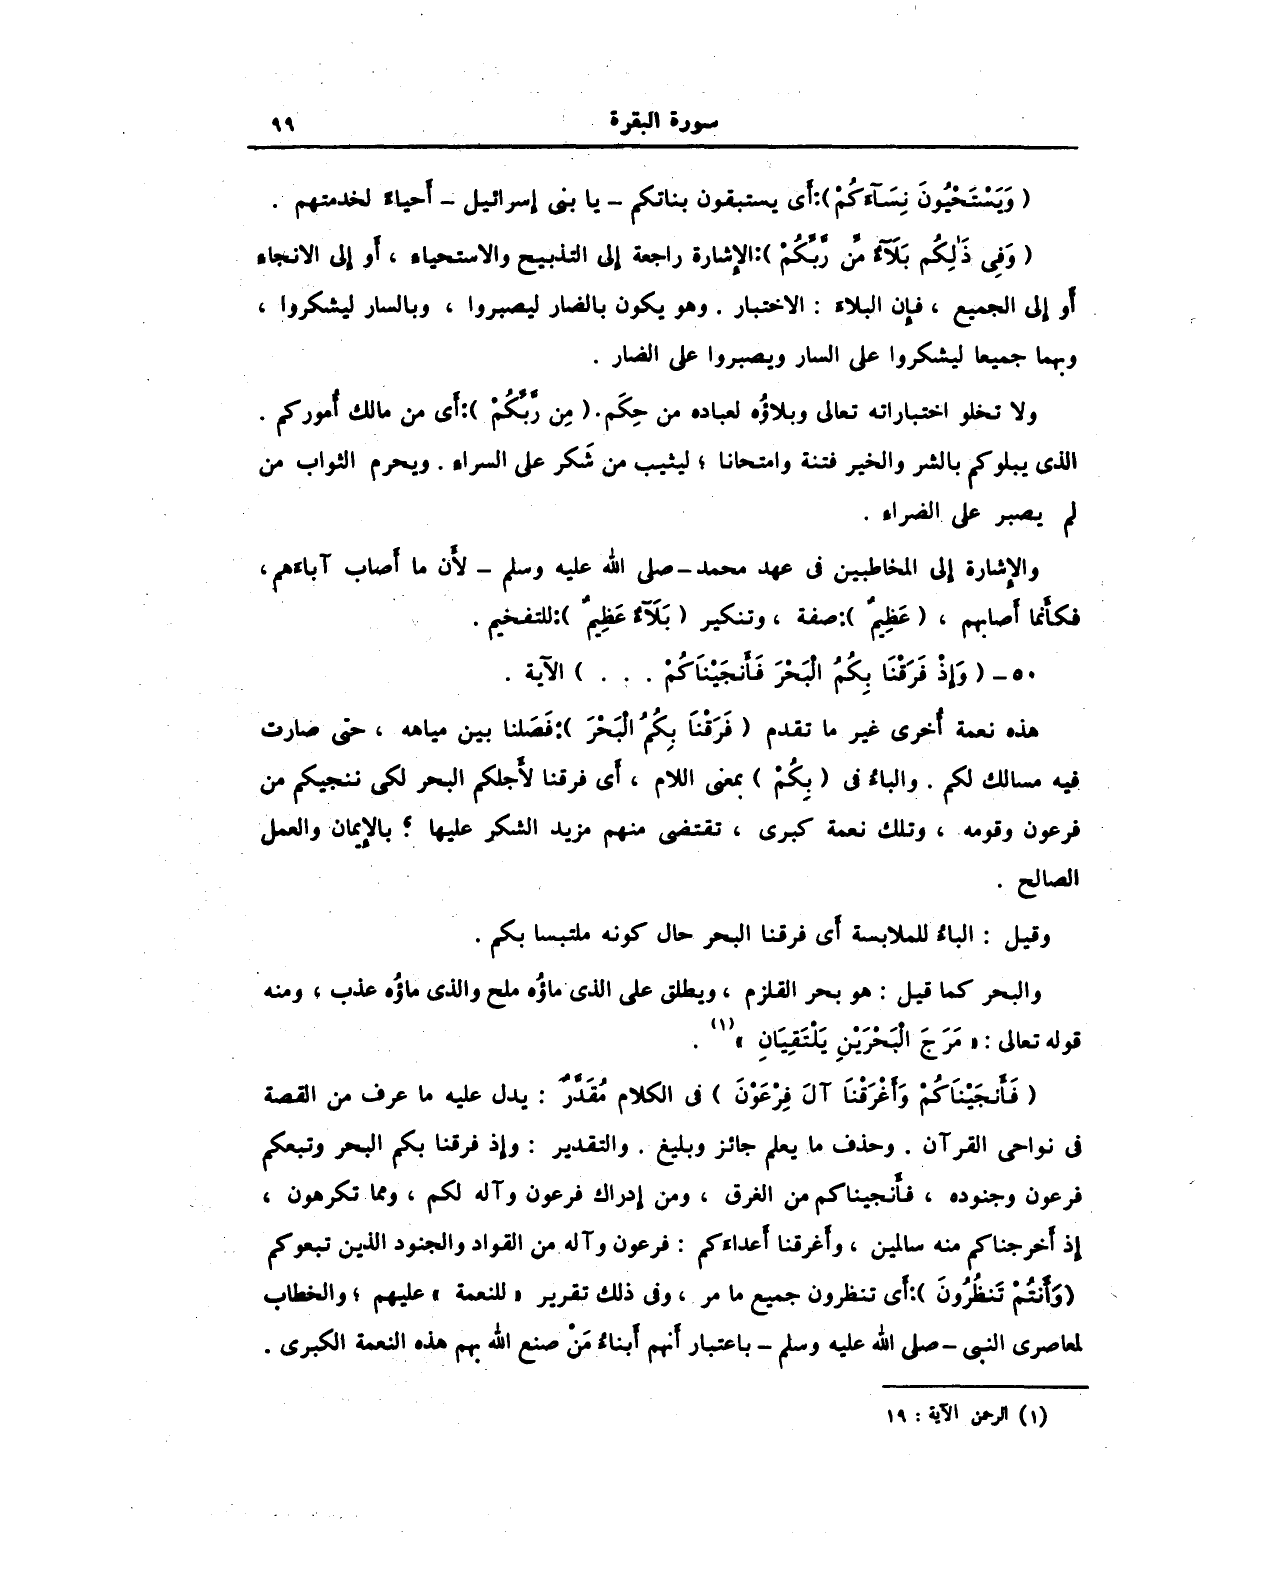 سورة البقرة
٩٩
( وَيَسْتَحْيُونَ نِسَآءَكُمْ ):أَى يستبقون بناتكم – يا بنى إسرائيل – أَحياءً لخدمتهم .
( وَفِى ذَٰلِكُم بَلَآءٌ مِّن رَّبِّكُمْ ):الإِشارة راجعة إلى التذبيح والاستحياء ، أَو إلى الانجاء
أَو إلى الجميع ، فإِن البلاءَ : الاختبار . وهو يكون بالضار ليصبروا ، وبالسار ليشكروا ،
وبهما جميعا ليشكروا على السار ويصبروا على الضار .
ولا تخلو اختباراته تعالى وبلاؤُه لعباده من حِكَم . ( مِن رَّبِّكُمْ ):أَى من مالك أُموركم .
الذى يبلوكم بالشر والخير فتنة وامتحانا ؛ ليثيب من شَكر على السراء . ويحرم الثواب من
لم يصبر على الضراء .
والإِشارة إلى المخاطبين فى عهد محمد – صلى الله عليه وسلم – لأَن ما أَصاب آباءَهم ،
فكأَنما أَصابهم ، ( عَظِيمٌ ):صفة ، وتنكير ( بَلَآءٌ عَظِيمٌ ):للتفخيم .
٥٠ – ( وَإِذْ فَرَقْنَا بِكُمُ الْبَحْرَ فَأَنجَيْنَاكُمْ . . . ) الآية .
هذه نعمة أُخرى غير ما تقدم ( فَرَقْنَا بِكُمُ الْبَحْرَ ):فَصَلنا بين مياهه ، حتى صارت
فيه مسالك لكم . والباءُ فى ( بِكُمْ ) بمعنى اللام ، أَى فرقنا لأَجلكم البحر لكى ننجيكم من
فرعون وقومه ، وتلك نعمة كبرى ، تقتضى منهم مزيد الشكر عليها ؛ بالإِيمان والعمل
الصالح .
وقيل : الباءُ للملابسة أَى فرقنا البحر حال كونه ملتبسا بكم .
والبحر كما قيل : هو بحر القلزم ، ويطلق على الذى ماؤُه ملح والذى ماؤُه عذب ، ومنه
قوله تعالى : « مَرَجَ الْبَحْرَيْنِ يَلْتَقِيَانِ » (١) .
( فَأَنجَيْنَاكُمْ وَأَغْرَقْنَا آلَ فِرْعَوْنَ ) فى الكلام مُقَدَّرٌ : يدل عليه ما عرف من القصة
فى نواحى القرآن . وحذف ما يعلم جائز وبليغ . والتقدير : وإذ فرقنا بكم البحر وتبعكم
فرعون وجنوده ، فأَنجيناكم من الغرق ، ومن إدراك فرعون وآله لكم ، ومما تكرهون ،
إذ أَخرجناكم منه سالمين ، وأَغرقنا أَعداءَكم : فرعون وآله من القواد والجنود الذين تبعوكم
( وَأَنتُمْ تَنظُرُونَ ):أَى تنظرون جميع ما مر ، وفى ذلك تقرير « للنعمة » عليهم ؛ والخطاب
لمعاصرى النبى – صلى الله عليه وسلم – باعتبار أَنهم أَبناءُ مَنْ صنع الله بهم هذه النعمة الكبرى .
(١) الرحمن الآية : ١٩